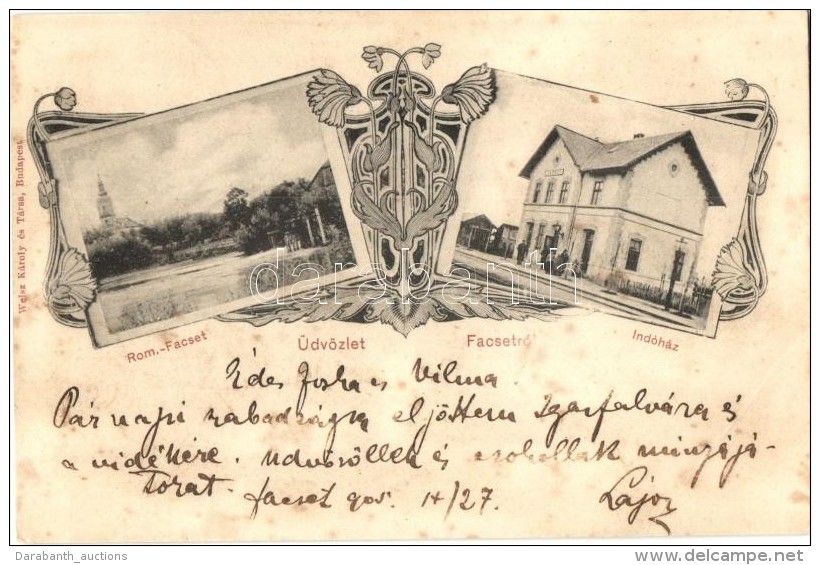 Weisz Károly és Társa, Budapest
darabanth
Rom.-Facset
Üdvözlet
Facsetró
Indóház
Édes Joska és Vilma
Pár napi szabadságra eljöttem Igazfalvára és
a vidékére. Udvözöllek és csokollak minzájá-
torat. Facset 902. 14/27.
Lajos
Darabanth_auctions
www.delcampe.net